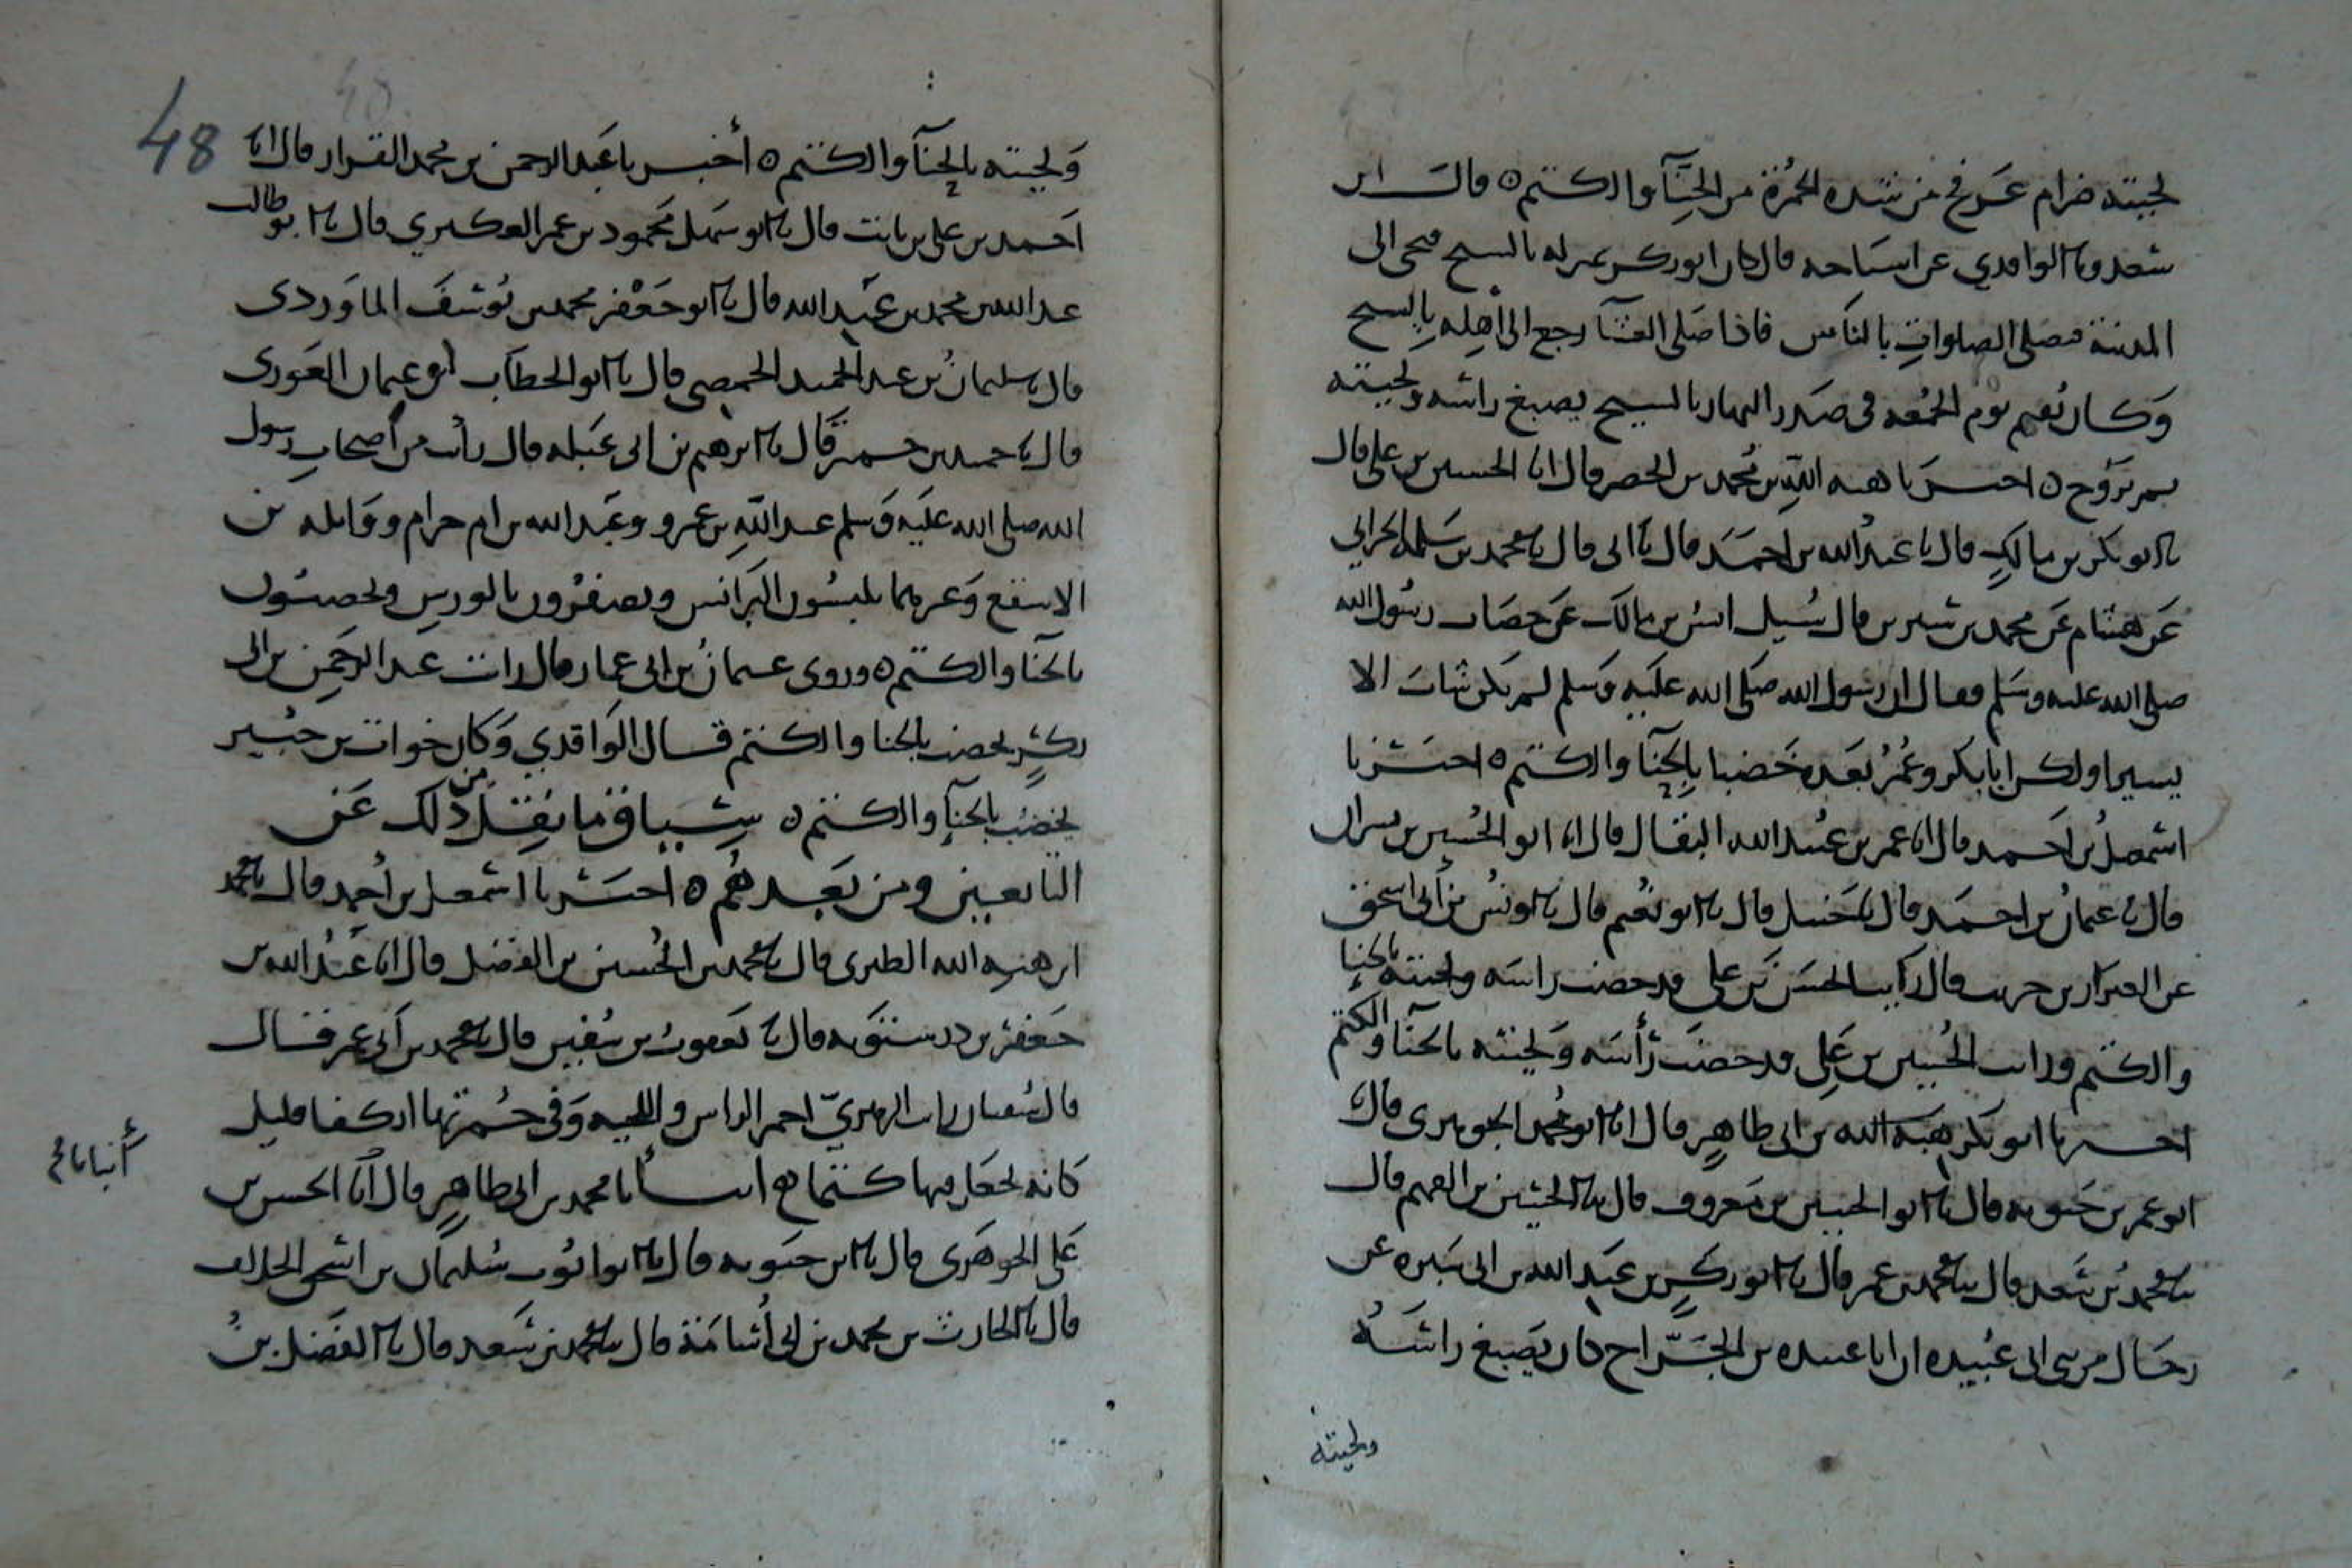 لحيته ضرام عرفج من شدة الحمرة من الحنآ والكتم ٥ قال ابن
سعد وبا الواقدي عن اشياخه قال كان ابو بكر بمنزله بالسنح فيجى الى
المدينة فيصلى الصلوات بالناس فاذا صلى العشآ رجع الى اهله بالسنح
وكان يقيم يوم الجمعه فى صدر النهار بالسنح يصبغ راسه ولحيته
ثم يروح ٥ اخبرنا هبه الله بن محمد بن الحصين قال انا الحسين بن على قال
نا ابو بكر بن مالك قال نا عبد الله بن احمد قال نا ابى قال نا محمد بن سلمه الحراني
عن هشام عن محمد بن سيرين قال سُيل انس بن مالك عن خضاب رسول الله
صلى الله عليه وسلم فقال ان رسول الله صلى الله عليه وسلم لم يكن شاب الا
يسيرا ولكن ابا بكر وعمر بعده خضبا بالحنآ والكتم ٥ اخبرنا
اسمعيل بن احمد قال انا عمر بن عبيد الله البقال قال انا ابو الحسين بن بسران
قال نا عثمان بن احمد قال نا حنبل قال نا ابو نعيم قال نا يونس بن أبى اسحق
عن العيزار بن حريث قال رايت الحسن بن على قد خضب راسه ولحيته بالحنا
والكتم ورايت الحسين بن على قد خضب رأسه ولحيته بالحنآ والكتم
اخبرنا ابو بكر هبة الله بن ابى طاهر قال انا ابو محمد الجوهرى قال نا
ابو عمر بن حيويه قال نا ابو الحسين بن معروف قال نا الحسين بن الفهم قال
نا محمد بن سعد قال نا محمد بن عمر قال نا ابو بكر بن عبد الله بن ابى سبره عن
رجال من بنى ابى عبيده ان ابا عبيده بن الجراح كان يصبغ راسه
ولحيته
48
ولحيته بالحنآ والكتم ٥ أخبرنا عبد الرحمن بن محمد القزاز قال انا
احمد بن على بن ثابت قال نا ابو سهل محمود بن عمر العكبري قال نا ابو طالب
عبد الله بن محمد بن عبد الله قال نا ابو جعفر محمد بن يوسف الماوردى
قال نا سليمان بن عبد الحميد الحمصى قال نا ابو الخطاب ابو عثمان الفوزى
قال نا محمد بن حمير قال نا ابرهيم بن ابى عبله قال رأيت من أصحاب رسول
الله صلى الله عليه وسلم عبد الله بن عمرو وعبد الله بن ام حرام وواثله بن
الاسقع وغيرهما يلبسون البرانس ويصفرون بالورس ويخضبون
بالحنا والكتم ٥ وروى عثمان بن ابى عمار قال رايت عبد الرحمن بن ابى
بكر يخضب بالحنا والكتم قال الواقدي وكان خوات بن جبير
يخضب بالحنآ والكتم ٥ سياق ما نقل من ذلك عن
التابعين ومن بعدهم ٥ اخبرنا اسمعيل بن أحمد قال نا محمد
ابن هبه الله الطبرى قال نا محمد بن الحسين بن الفضل قال انا عبد الله بن
جعفر بن درستويه قال نا يعقوب بن سفين قال نا محمد بن أبى عمر قال
قال سفيان رايت الزهريّ احمر الراس واللحيه وفى حمرتها انكفا قليل
كانه يجعل فيها كتما ع انبأنا محمد بن ابى طاهر قال أنا الحسن بن
على الجوهرى قال نا ابن حيويه قال نا ابو ايوب سليمان بن اسحق الجلاب
قال نا الحارث بن محمد بن ابى أسامة قال نا محمد بن سعد قال نا الفضل بن